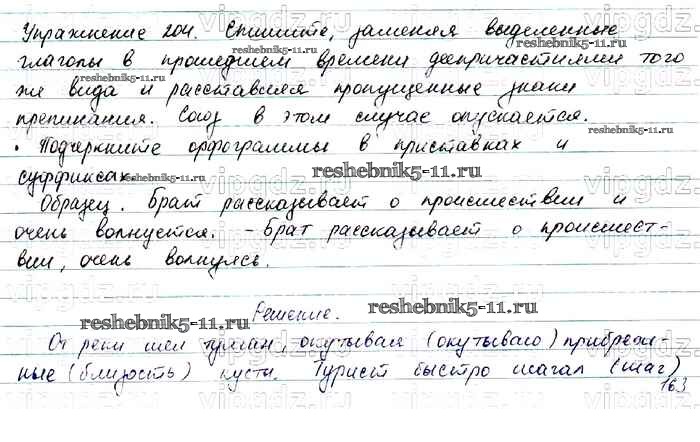 Упражнение 204. Спишите, заменяя выделенные
глаголы в прошедшем времени деепричастиями того
же вида и расставляя пропущенные знаки
препинания. Союз в этом случае опускается.
• Подчеркните орфограммы в приставках и
суффиксах.
Образец. Брат рассказывает о происшествии и
очень волнуется. - Брат рассказывает о происшест-
вии, очень волнуясь.
Решение.
От реки шел туман, окутывая (окутываю) прибреж-
ные (близость) кусты. Турист быстро шагал (шаг)
163
reshebnik5-11.ru
reshebnik5-11.ru
reshebnik5-11.ru
reshebnik5-11.ru
reshebnik5-11.ru
reshebnik5-11.ru
reshebnik5-11.ru
vipgdz.com